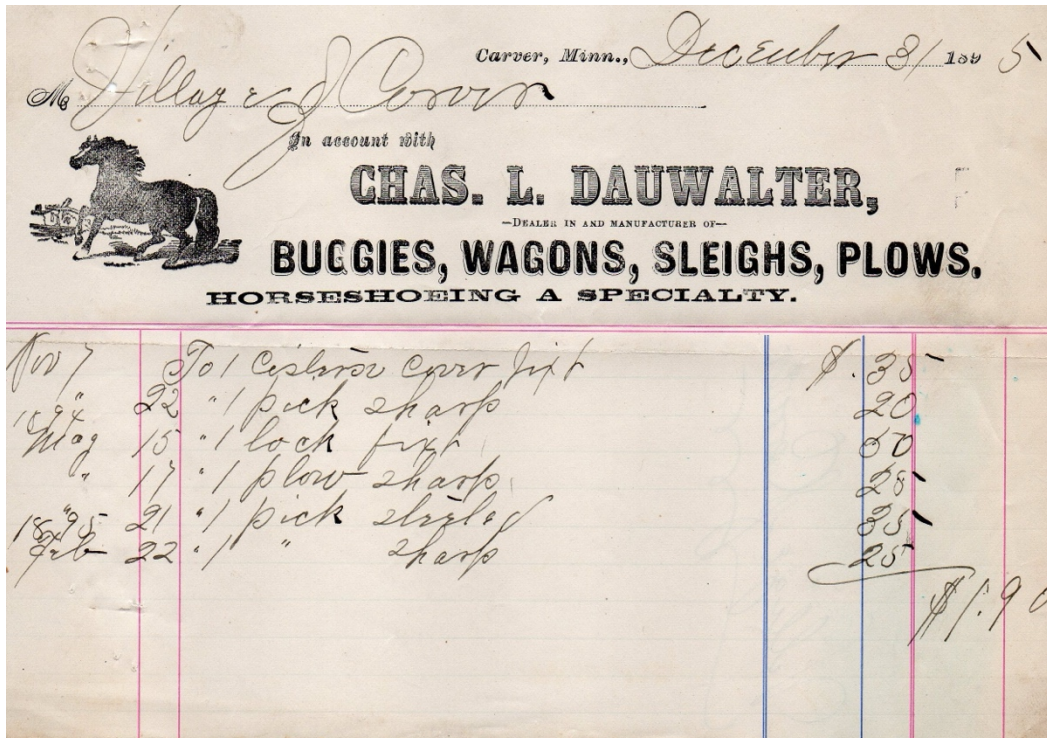 Carver, Minn., December 31 1895
M Village of Carver
In account with
CHAS. L. DAUWALTER,
—DEALER IN AND MANUFACTURER OF—
BUGGIES, WAGONS, SLEIGHS, PLOWS.
HORSESHOEING A SPECIALTY.
Nov 7 To 1 Cistern Cover fixt $.35
" 22 " 1 pick sharp 20
1894
May 15 " 1 lock fixt 50
" 17 " 1 plow sharp 25
" 21 " 1 pick steeled 35
1895
Feb 22 " 1 " sharp 25
$1.90